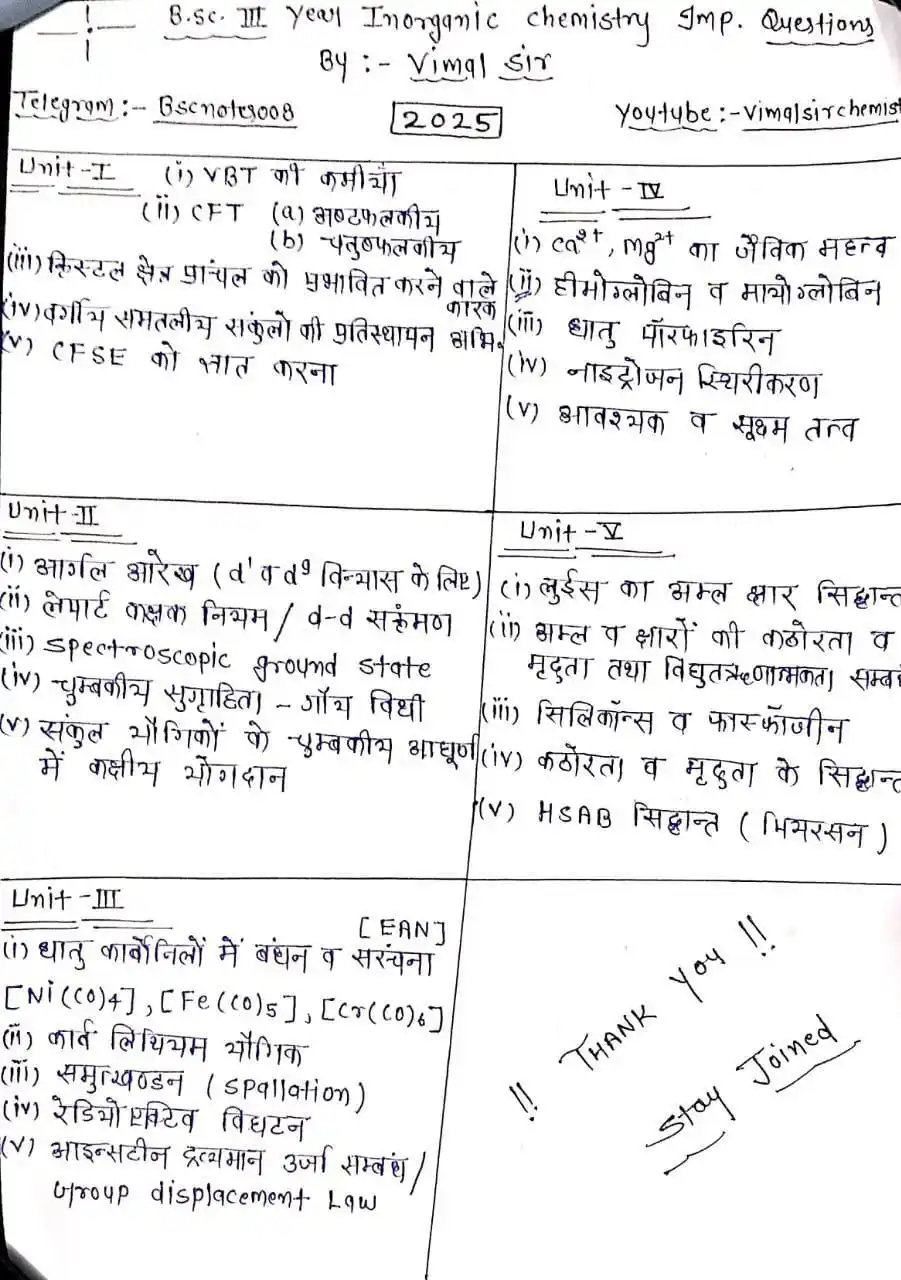 B.sc. III Year Inorganic chemistry Imp. Questions
By :- Vimal Sir
Telegram :- Bscnotes008
2025
Youtube :- Vimalsirchemist
Unit - I
(i) VBT की कमीयाँ
(ii) CFT (a) अष्टफलकीय
(b) चतुष्फलकीय
(iii) क्रिस्टल क्षेत्र प्राचंल को प्रभावित करने वाले
कारक
(iv) वर्गीय समतलीय संकुलो की प्रतिस्थापन अभि.
(v) CFSE को ज्ञात करना
Unit - II
(i) आर्गल आरेख (d¹ व d⁹ विन्यास के लिए)
(ii) लेपार्ट कक्षक नियम / d-d संक्रमण
(iii) spectroscopic ground state
(iv) चुम्बकीय सुग्राहिता - गॉय विधी
(v) संकुल यौगिकों के चुम्बकीय आघूर्ण
में कक्षीय योगदान
Unit - III
[EAN]
(i) धातु कार्बोनिलों में बंधन व सरंचना
[Ni(CO)4], [Fe(CO)5], [Cr(CO)6]
(ii) कार्ब लिथियम यौगिक
(iii) समुत्खण्डन (Spallation)
(iv) रेडियोएक्टिव विघटन
(v) आइन्सटीन द्रव्यमान उर्जा सम्बंध /
Group displacement Law
Unit - IV
(i) Ca²⁺, Mg²⁺ का जैविक महत्व
(ii) हीमोग्लोबिन व मायोग्लोबिन
(iii) धातु पॉरफाइरिन
(iv) नाइट्रोजन स्थिरीकरण
(v) आवश्यक व सूक्ष्म तत्व
Unit - V
(i) लुईस का अम्ल क्षार सिद्धान्त
(ii) अम्ल व क्षारों की कठोरता व
मृदुता तथा विद्युतऋणात्मकता सम्बंध
(iii) सिलिकॉन्स व फास्फॉजीन
(iv) कठोरता व मृदुता के सिद्धान्त
(v) HSAB सिद्धान्त (पियरसन)
!! THANK YOU !!
Stay Joined